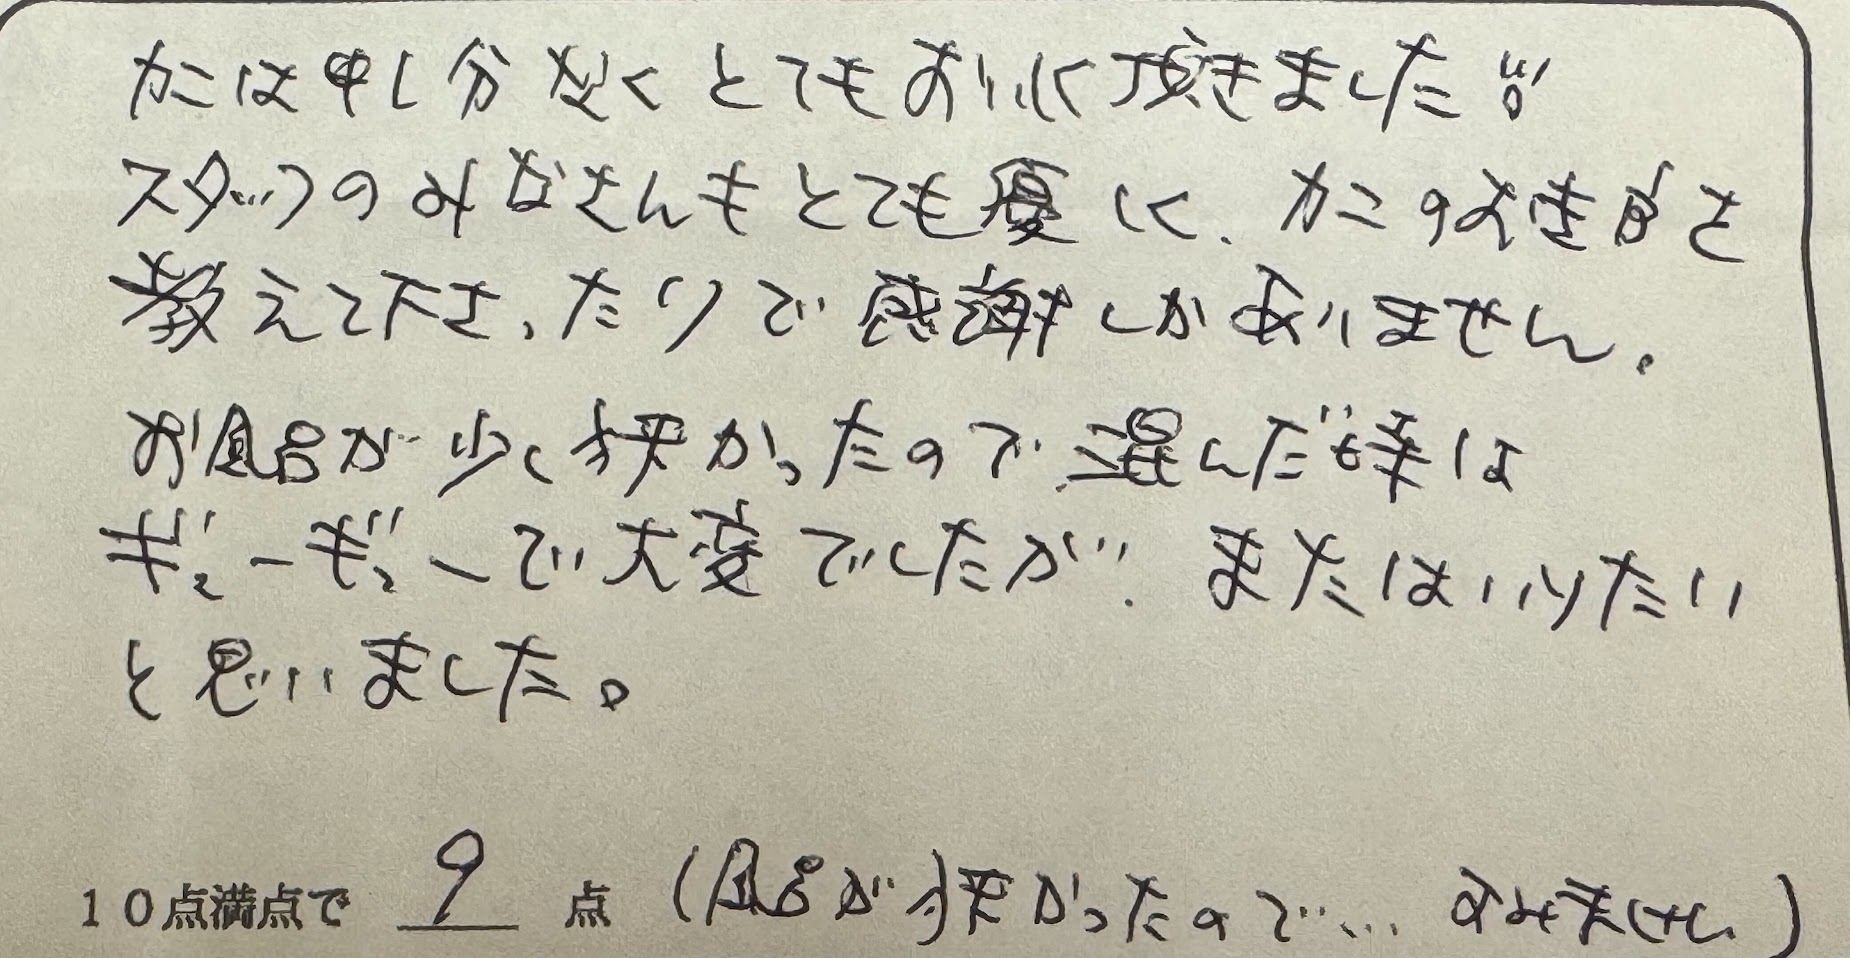 カニは申し分なくとてもおいしく頂きました!!
スタッフのみなさんもとても優しく、カニのよき部を
教えて下さったりで感謝しかありません。
お風呂が少し狭かったので、混んだ時は
ギューギューで大変でしたが、またはいりたい
と思いました。
10点満点で 9 点 (風呂が狭かったので… すみません)